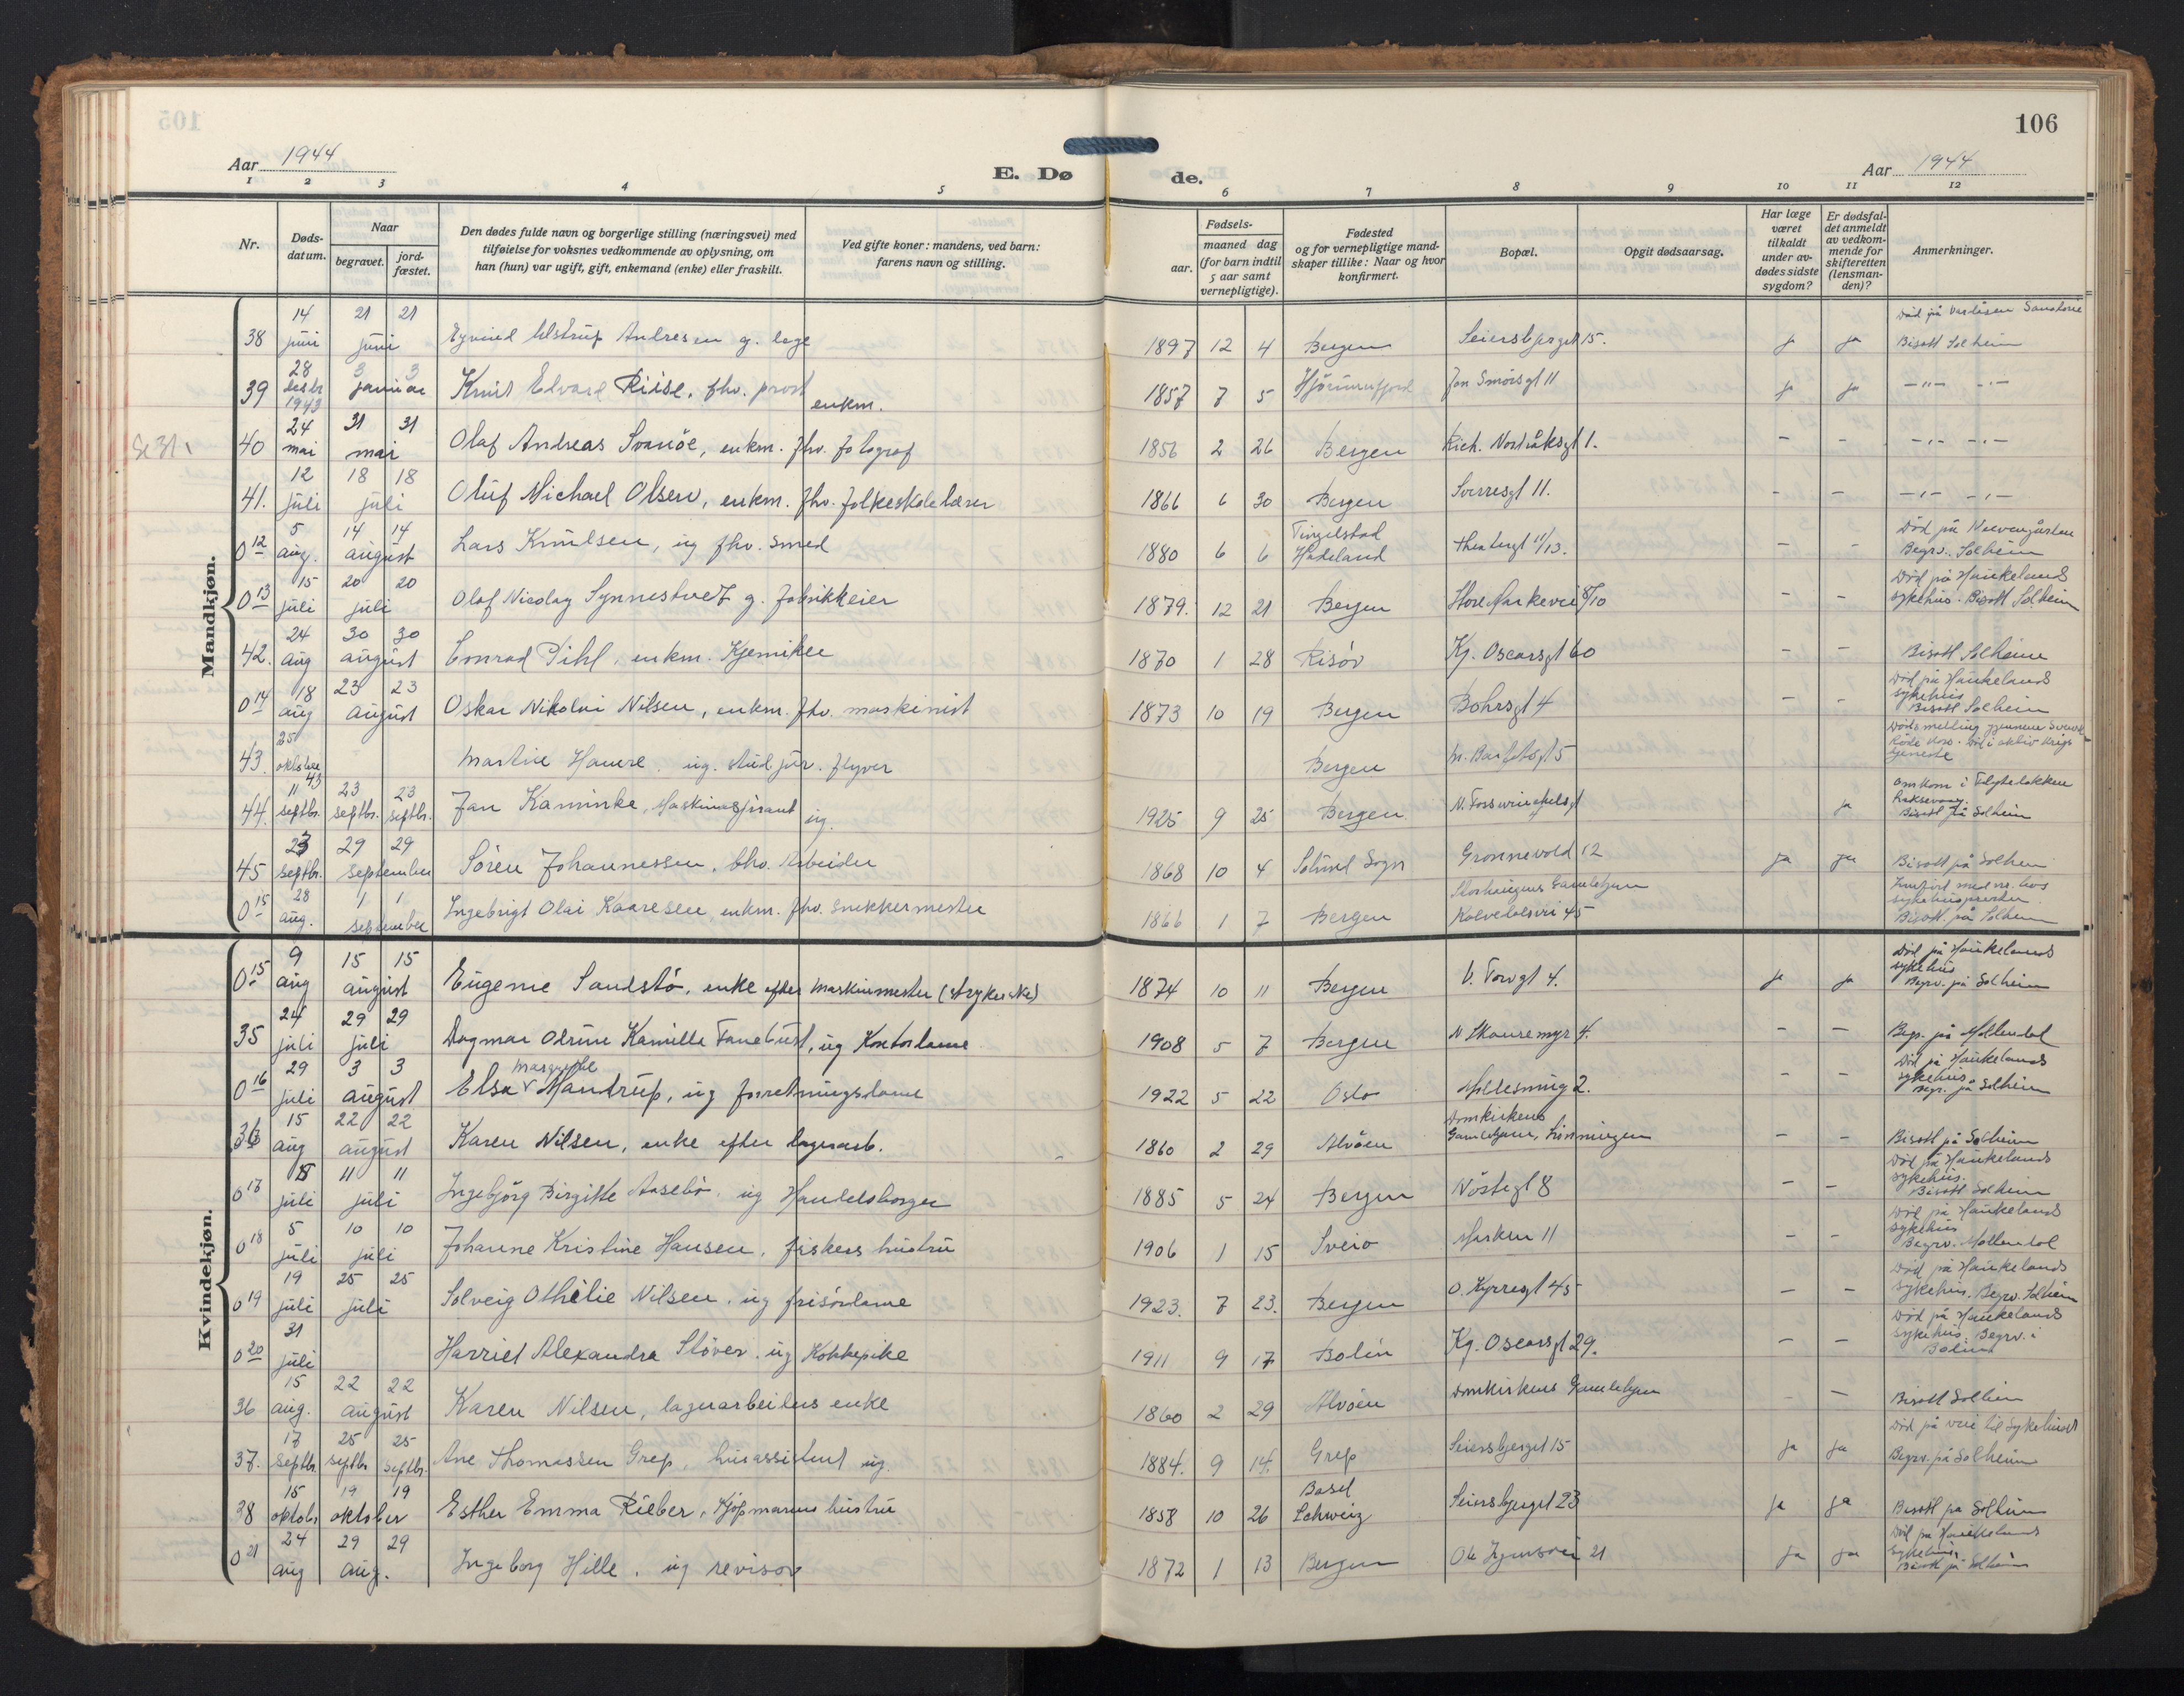 105
106
Aar 1944
E. Dø
de.
Aar 1944
1 2 3 4 5 6 7 8 9 10 11 12
Nr.
Døds-
datum.
Naar
begravet.
jord-
fæstet.
Den dødes fulde navn og borgerlige stilling (næringsvei) med
tilføielse for voksnes vedkommende av oplysning, om
han (hun) var ugift, gift, enkemand (enke) eller fraskilt.
Ved gifte koner: mandens, ved barn:
farens navn og stilling.
Fødsels-
aar.
maaned dag
(for barn indtil
5 aar samt
vernepligtige).
Fødested
og for vernepligtige mand-
skaper tillike: Naar og hvor
konfirmert.
Bopæl.
Opgit dødsaarsag.
Har læge
været
tilkaldt
under av-
dødes sidste
sygdom?
Er dødsfal-
det anmeldt
av vedkom-
mende for
skifteretten
(lensman-
den)?
Anmerkninger.
Mandkjøn.
38 14 juni 21 21 juni Eyvind Ulstrup Andresen g. lege 1897 12 4 Bergen Seiersbjerget 15. ja ja Død på Vardåsen Sanatorie Bisatt Solheim
39 28 desbr 1943 3 3 januar Knut Edvard Riise, fhv. prost enkm. 1857 7 5 Hjørundfjord Jon Smørsgt 11 ja ja —"— —"—
40 24 mai 31 31 mai Olaf Andreas Svanöe, enkm. fhv. fotograf 1856 2 26 Bergen Rich. Nordråksgt 1. – – —"— —"—
41. 12 juli 18 18 juli Oluf Michael Olsen, enkm. fhv. folkeskolelærer 1866 6 30 Bergen Sverresgt 11. – – —"— —"—
0 12 5 aug. 14 14 august Lars Knudsen, ug fhv. smed 1880 6 6 Tingelstad Hadeland Theatergt 11/13. – – Død på Neevengården Begrv. Solheim
0 13 15 juli 20 20 juli Olaf Nicolay Synnestvedt g. fabrikkeier 1879. 12 21 Bergen Store Markevei 8/10 – – Død på Haukelands sykehus. Bisatt Solheim
42. 24 aug 30 30 august Conrad Pihl, enkm. Kjemiker 1870 1 28 Risör Kg. Oscarsgt 60 – – Bisatt Solheim
0 14 18 aug 23 23 august Oskar Nikolai Nilsen, enkm. fhv. maskinist 1873 10 19 Bergen Bohrsgt 4 – – Død på Haukelands sykehus Bisatt Solheim
43. 25 oktober 43 Martin Hamre. ug. stud jur. flyver Bergen Dödsmelding gjennem Svensk Röde Kors. Död i aktiv krigs tjeneste
44. 11 septbr. 23 septbr. 23 septbr. Jan Kaminke, Maskinaspirant ug. 1925 9 25 Bergen N. Fosswinckelsgt ja Omkom i Bisatt på Solheim
45 23 septbr. 29 29 september Sören Johannessen, fhv. Arbeider 1868 10 4 Solund Sogn Grönnevold 12 ja ja Bisatt på Solheim
0 15 28 aug. 1 1 september Ingebrigt Olai Kaaresen, enkm. fhv. Snekkermester 1866 1 7 Bergen Storhaugens Gamlehjem Kalvedalsvei 45 sykehuspresten Bisatt på Solheim
Kvindekjøn.
0 15 9 aug 15 15 august Eugenie Sandstö, enke efter maskinmester (strykerske) 1874 10 11 Bergen V. Torvgt 4. ja ja Död på Haukelands sykehus Begrv. på Solheim
35 24 juli 29 29 juli Dagmar Olrine Kamilla Tanebust, ug Kontordame 1908 5 7 Bergen N Skauremyr 4. – – Begr. på Møllendal
0 16 29 juli 3 3 august Elsa Margrethe Mandrup, ug forretningsdame 1922 5 22 Oslo 2. – – Död på Haukelands sykehus Begr. på Solheim
36 15 aug 22 22 august Karen Nilsen, enke efter lagerarb. 1860 2 29 Alvöen Domkirkens Gamlehjem, – – Bisatt på Solheim
0 17 5 juli 11 11 juli Ingebjörg Birgitte Aasebö, ug Handelsborger 1885 5 24 Bergen Nöstegt 8 – – Död på Haukelands sykehus. Bisatt Solheim
0 18 5 juli 10 10 juli Johanne Kristine Hansen, fiskers hustru 1906 1 15 Sveio Marken 11 – – Död på Haukelands sykehus Begrv. Møllendal
0 19 19 juli 25 25 juli Solveig Othelie Nilsen, ug frisördame 1923. 7 23. Bergen O. Kyrresgt 45 – – Död på Haukelands sykehus. Begrv. Solheim
0 20 31 juli Harriet Alexandra Stöver, ug Kokkepike 1911 9 17 Kg. Oscarsgt 29. – – Död på Haukelands sykehus. Begrv. i
36 15 aug. 22 22 august Karen Nilsen, lagerarbeiders enke 1860 2 29 Alvöen Domkirkens Gamlehjem – – Bisatt Solheim
37. 17 septbr. 25 septbr 25 septbr. Ane Thomassen Grep, husassistent ug. 1884. 9 14. Grep Seiersbjerget 15 ja ja Död på vei til sykehuset Begrv. på Solheim
38 15 oktobr 19 19 oktober Esther Emma Rieber, Kjøpmanns hustru 1858 10 26 Basel Schweiz Seiersbjerget 23 ja ja Bisatt på Solheim
0 21 24 aug 29 29 aug. Ingeborg Hille, ug revisor 1872 1 13 Bergen 21 ja ja Död på Haukelands sykehus Bisatt på Solheim